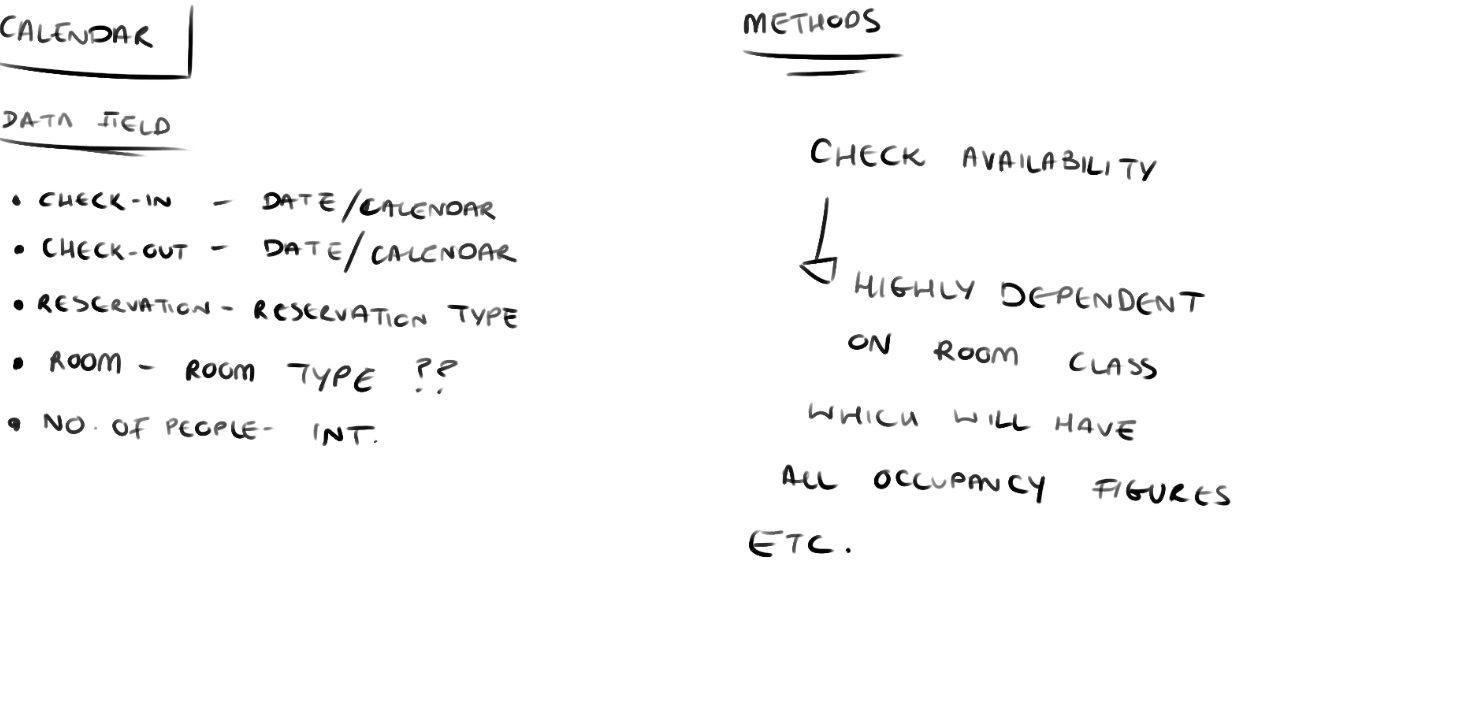 CALENDAR
DATA FIELD
• CHECK-IN - DATE/CALENDAR
• CHECK-OUT - DATE/CALENDAR
• RESERVATION - RESERVATION TYPE
• ROOM - ROOM TYPE ??
• NO. OF PEOPLE - INT.
METHODS
CHECK AVAILABILITY
HIGHLY DEPENDENT
ON ROOM CLASS
WHICH WILL HAVE
ALL OCCUPANCY FIGURES
ETC.